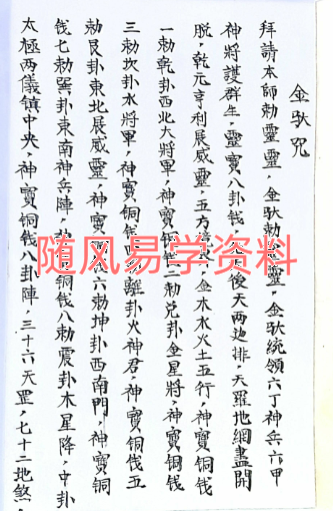 金馱咒
拜請本師勅靈靈，金馱勅靈靈，金馱統領六丁神兵六甲
神將護群生，靈寶八卦錢，先天後天兩边排，天羅地網盡開
脫，乾元亨利展威靈，五方，金木水火土五行，神寶铜钱
一勅乾卦西北大將軍，神寶铜钱二勅兌卦金星將，神寶铜钱
三勅坎卦水將軍，神寶铜钱勅離卦火神君，神寶铜钱五
勅艮卦東北展威靈，神寶六勅坤卦西南門，神寶铜
钱七勅巽卦東南神兵陣，铜钱八勅震卦木星降，中卦
太極两儀镇中央，神寶铜钱八卦陣，三十六天罡，七十二地煞，
随风易学资料